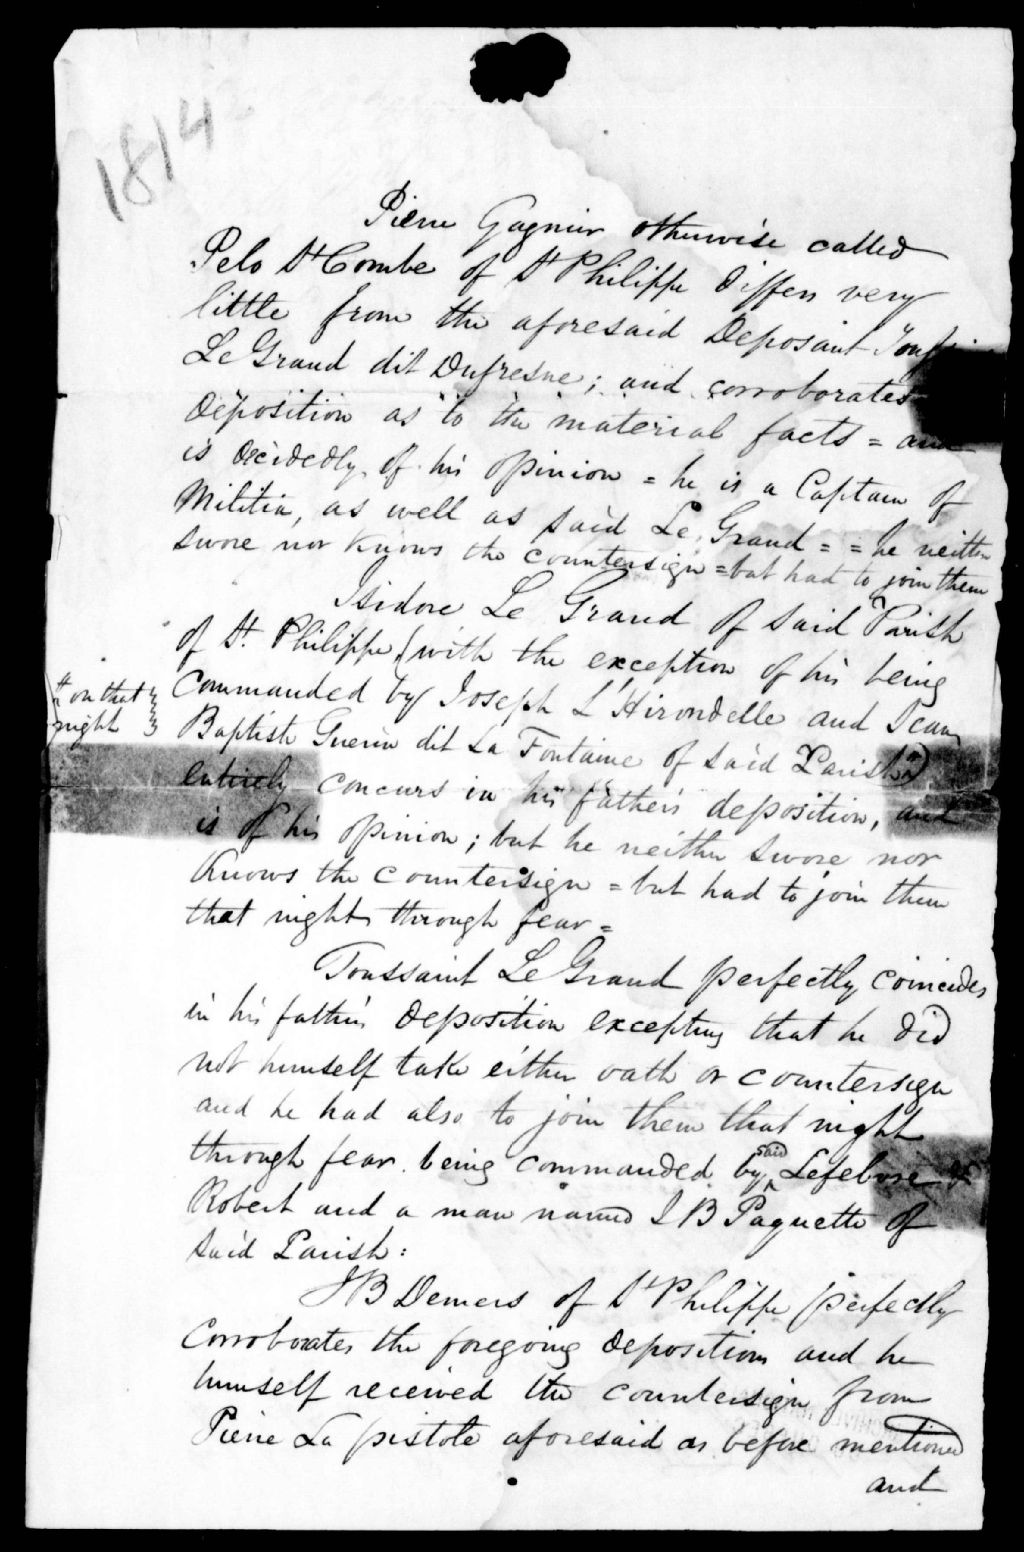 1814
Pierre Gagnier otherwise called
Pelo St Combe of St Philippe differs very
little from the aforesaid Deposant
Le Grand dit Dufresne; and corroborates
deposition as to the material facts = and
is decidedly of his opinion = he is a Captain of
Militia, as well as said Le Grand = = he neither
swore nor knows the countersign = but had to join them
Isidore Le Grand of said Parish
of St. Philippe (with the exception of his being
commanded by Joseph L'Hirondelle and Jean
" on that
night
Baptiste Guerin dit La Fontaine of said Parish ")
entirely concurs in his father's deposition, and
is of his opinion; but he neither swore nor
knows the countersign = but had to join them
that night through fear =
Toussaint Le Grand perfectly coincides
in his father's deposition excepting that he did
not himself take either oath or countersign
and he had also to join them that night
through fear being commanded by said Lefebvre &
Robert and a man named J B Paquette of
said Parish:
J B Demers of St Philippe perfectly
corroborates the foregoing depositions and he
himself received the countersign from
Pierre La pistole aforesaid as before mentioned
and